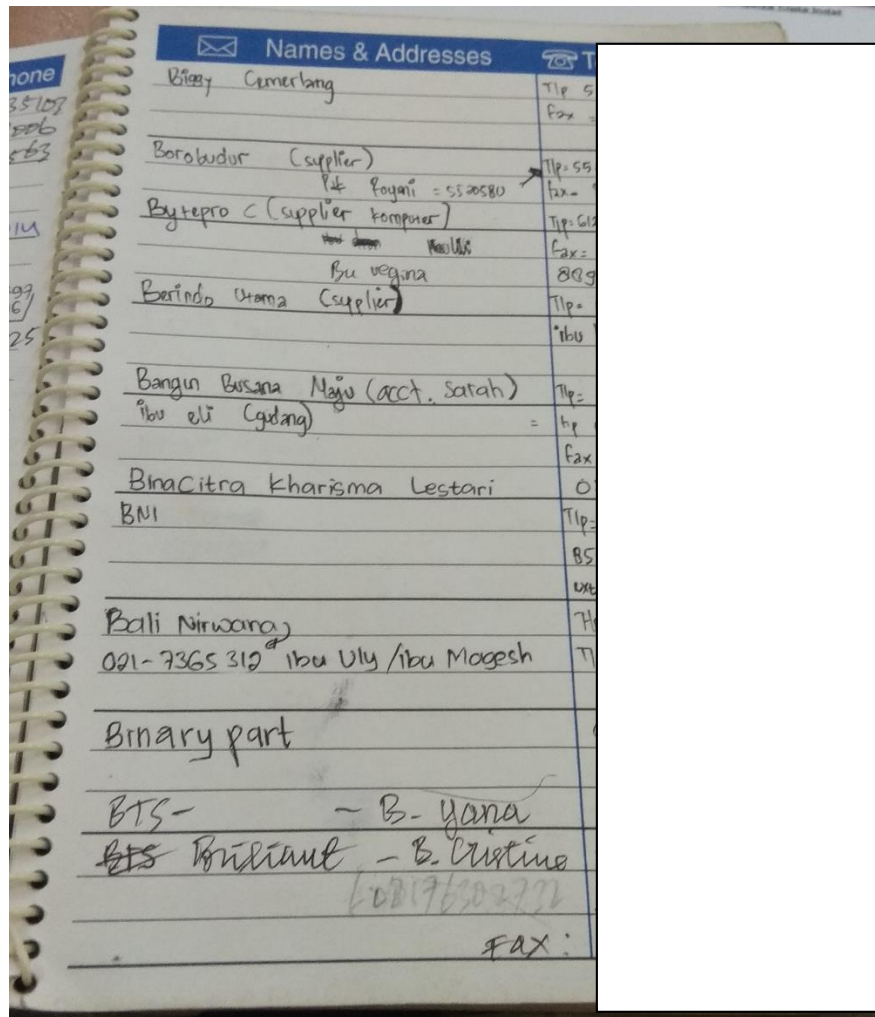 Names & Addresses T
hone
Biggy Cemerlang Tlp 5
Fax =
Borobudur (supplier) Tlp = 55
= 5520580 fax -
Bytepro C (supplier komputer) Tlp: 612
Fax =
Bu vegina 889
Berindo Utama (supplier) Tlp =
ibu
Bangun Busana Maju (acct. Sarah) Tlp =
ibu eli (gudang) = hp
Fax
BinaCitra Kharisma Lestari 0
BNI Tlp =
85
ext
Bali Nirwana
021-7365 312 ibu Uly /ibu Magesh Tl
Binary part
BTS - - B. Yana
BTS Briliant - B. Cristine
Fax :